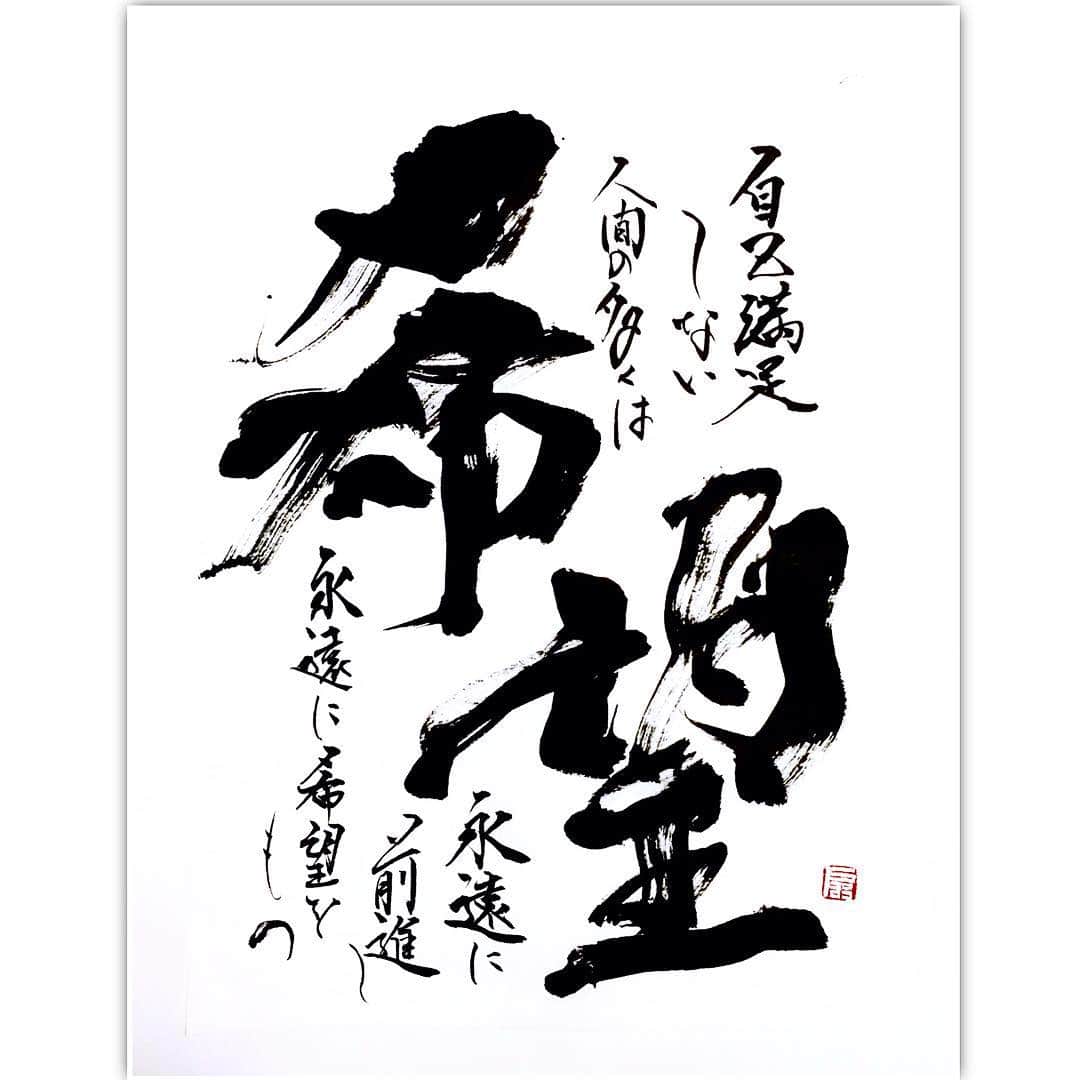 希望
自己満足
しない
人間の多くは
永遠に
前進し
永遠に希望を
もつ